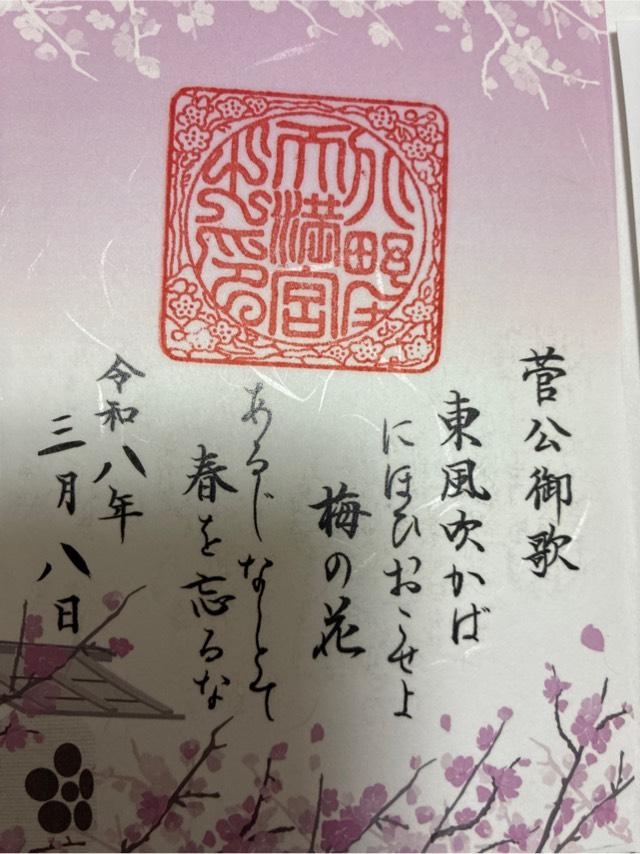 天満宮
之印
菅公御歌
東風吹かば
にほひおこせよ
梅の花
あるじなしとて
春を忘るな
令和八年
三月八日